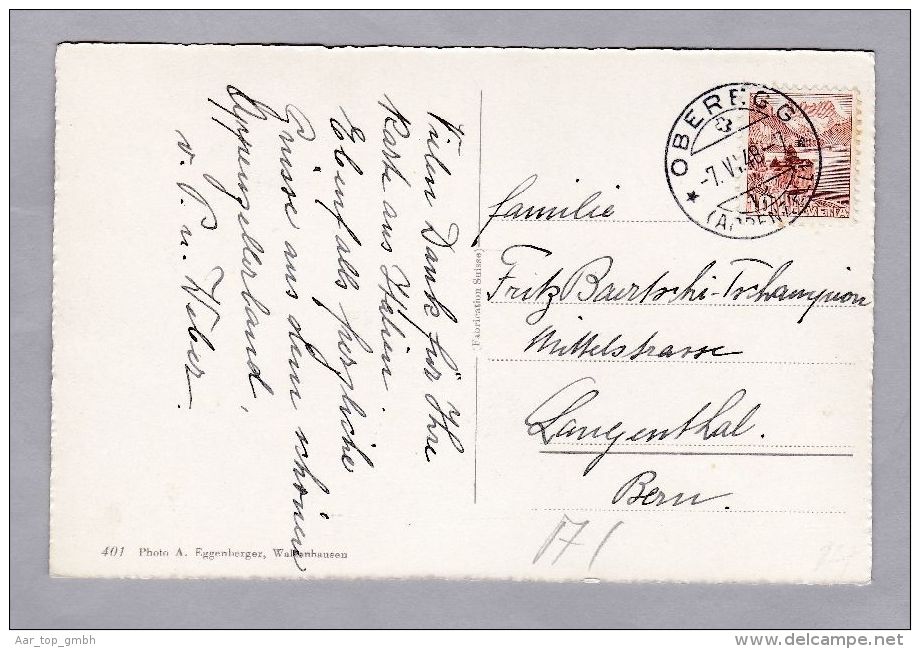 Vielen Dank für Ihre
Karte aus Italien.
Ebenfalls herzliche
Grüsse aus dem schönen
Appenzellerland.
v. P. u. Weber.
(Fabrication Suisse)
OBEREGG
-7.V.48
(APPENZELL)
HELVETIA
Familie
Fritz Baertschi-Tschampion
Mittelstrasse
Langenthal.
Bern.
401 Photo A. Eggenberger, Walzenhausen
Aar_top_gmbh
www.delcampe.net